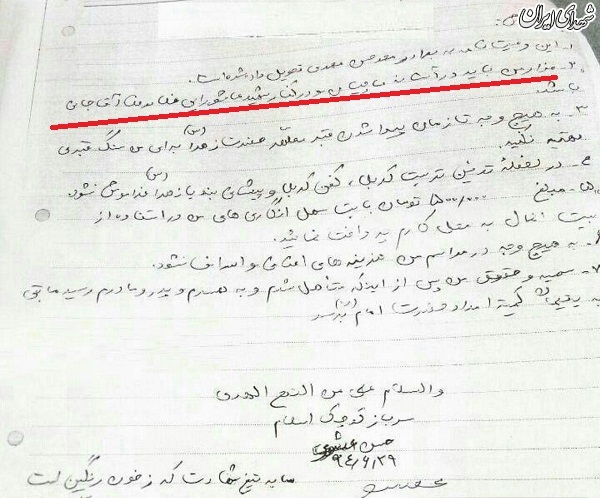 شهدای ایران
۱- این وصیت نامه به برادرم مهندس مهدی تحویل داده شده است.
۲- مزار من باید در آستانه و در کنار شهید عاشورایی آقاجانی
باشد.
۳- به هیچ وجه تا زمان پیدا شدن قبر مطهر حضرت زهرا (س) برای من سنگ قبری
تهیه نکنید.
۴- در لحظه تدفین تربت کربلا، کفن کربلا و پیشانی بند یا زهرا (س) فراموش نشود
۵- مبلغ ۵۰۰/۰۰۰ تومان بابت سهل انگاری های من در استفاده از
بیت المال به محل کارم پرداخت نمائید.
۶- به هیچ وجه در مراسم من هزینه های اضافی و اسراف نشود.
۷- سهمیه و حقوق من پس از اینکه متأهل شدم و به همسرم و پدر و مادرم رسید مابقی
به یتیمان کمیته امداد حضرت امام (ره) برسد
والسلام علی من التبع الهدی
سرباز کوچک اسلام
حسن
۹۴/۶/۲۹
سایه تیغ شهادت که ز خون رنگین است